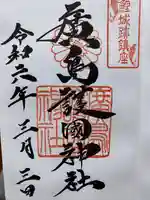 城跡鎮座
廣島護國神社
令和六年 三月三日